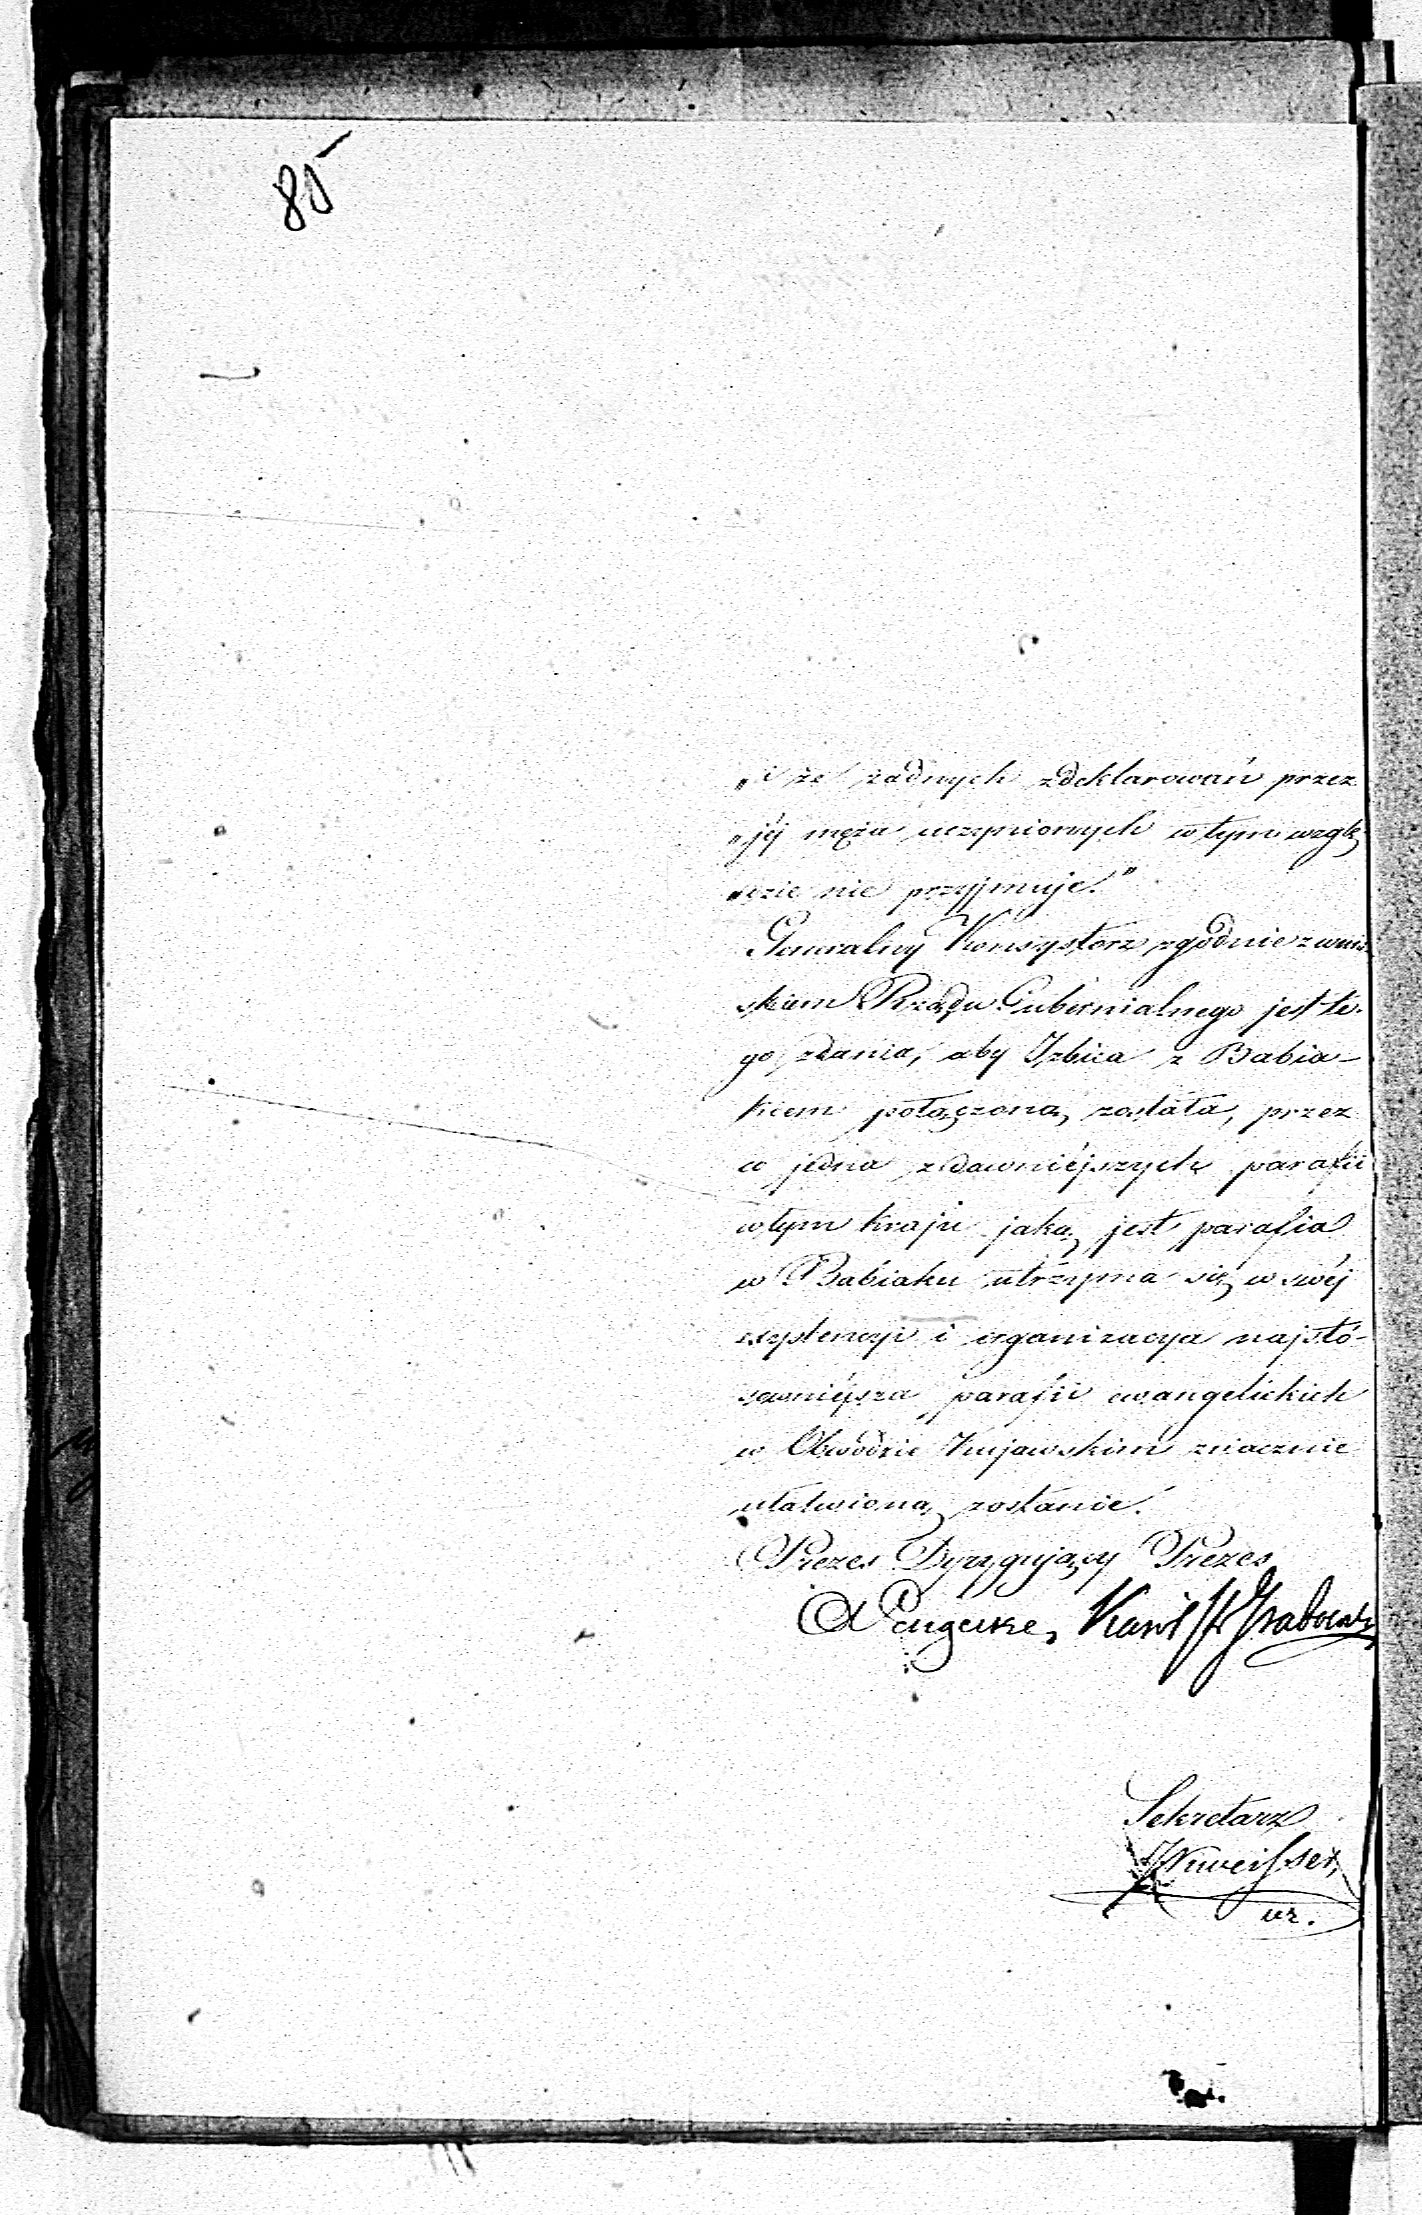 85
„i że żadnych zdeklarowań przez
„jéj męża uczynionych w tym wzglę
„dzie nie przyjmuje."
Generalny Konsystorz zgodnie z wnio
skiem Rządu Gubernialnego jest te-
go zdania, aby Izbica z Babia-
kiem połączoną została, przez
co jedna z dawniéjszych parafii
w tym kraju jaką jest parafia
w Babiaku utrzyma się w swéj
exystencyi i organizacya najstó-
sowniéjsza parafii ewangelickich
w Obwodzie Kujawskim znacznie
ułatwioną zostanie.
Prezes Dyrygujący Prezes
Karol
Sekretarz